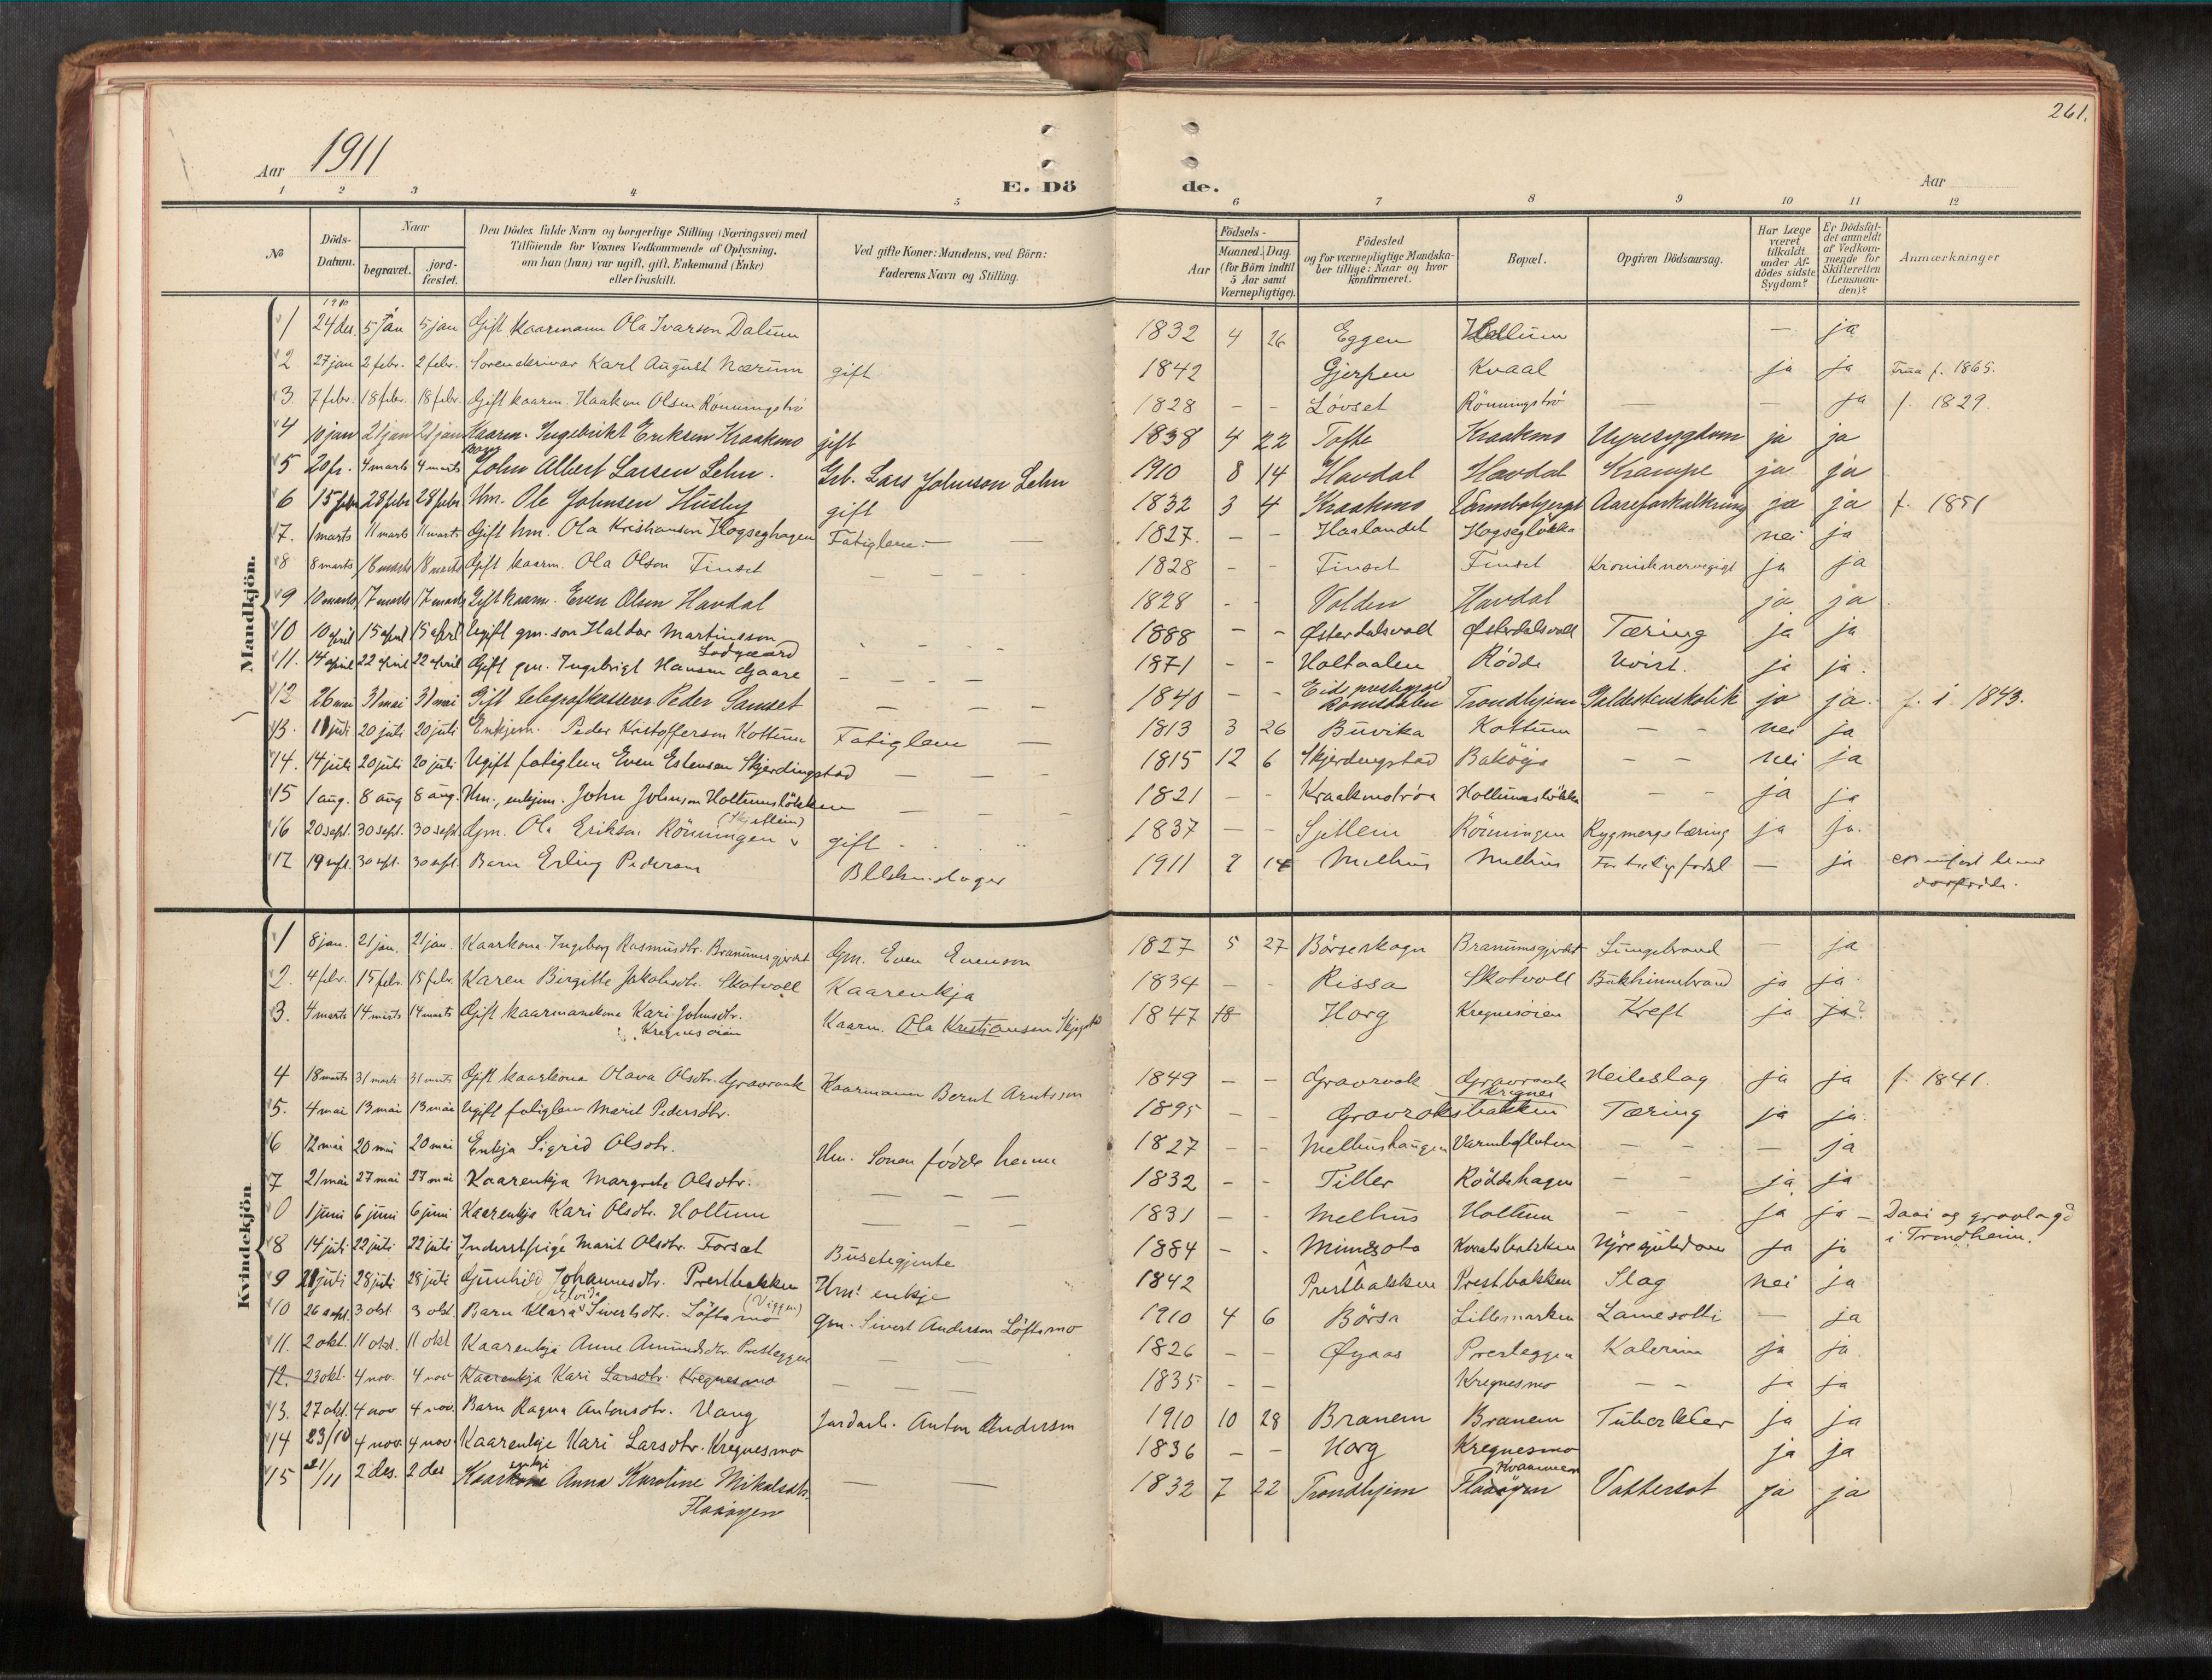 261.
Aar 1911
E. Dö de.
Aar
1 2 3 4 5 6 7 8 9 10 11 12
№
Döds-Datum.
Naar
begravet.
jord-fæstet.
Den Dödes fulde Navn og borgerlige Stilling (Næringsvei) med
Tilföiende for Voxnes Vedkommende af Oplysning,
om han (hun) var ugift, gift, Enkemand (Enke)
eller fraskilt.
Ved gifte Koner: Mandens, ved Börn:
Faderens Navn og Stilling.
Födsels-
Aar
Maaned. Dag.
(for Börn indtil
5 Aar samt
Værnepligtige).
Födested
og for værnepligtige Mandska-
ber tillige: Naar og hvor
konfirmeret.
Bopæl.
Opgiven Dödsaarsag.
Har Læge
været
tilkaldt
under Af-
dödes sidste
Sygdom?
Er Dödsfal-
det anmeldt
af Vedkom-
mende for
Skifteretten
(Lensman-
den)?
Anmærkninger
Mandkjön.
1910
1 24 des 5 jan 5 jan Gift kaarmann Ola Ivarson Dalum 1832 4 26 Eggen — ja
2 27 jan 2 febr. 2 febr. Sorenskrivar Karl August Nærum gift 1842 Gjerpen Kvaal ja ja Frua f. 1865.
3 7 febr. 18 febr. 18 febr. Gift kaarm. Haakon Olsen Rönningströ 1828 - - Lövset Rönningströ — — ja f. 1829.
4 10 jan 21 jan 21 jan Kaarm. Ingebrikt Eriksen Kraakmo gift 1838 4 22 Tofte Kraakmo Nyresygdom ja ja
Barn
5 20 fr. 4 marts 4 marts John Albert Larsen Lehn. Grb. Lars Johnson Lehn 1910 8 14 Havdal Havdal Krampe ja ja
6 15 febr 28 febr 28 febr Hm. Ole Johnsen Husby gift 1832 3 4 Kraakmo Varmbobjerget Aareforkalkning ja ja f. 1851
7. 1 marts 11 marts 11 marts Gift hm. Ola Kristianson Hogseghagen Fatiglem — — 1827. - - Haalandet Hogsegløkka nei ja
8 8 marts 18 marts 18 marts Gift kaarm. Ola Olson Finset — — — 1828 - - Finset Finset Kronisk nervegigt ja ja
9 10 marts 17 marts 17 marts Gift kaarm. Even Olson Havdal 1828 - - Volden Havdal ja ja
10 10 april 15 april 15 april Ugift gm. son Haldor Martinsson 1888 - - Østerdalsvold Østerdalsvold Tæring ja ja
Lodgaard
11. 14 april 22 april 22 april Gift gm. Ingebrigt Hansen Gaare — — — 1871 - - Holtaalen Rödde ja ja.
12 26 mai 31 mai 31 mai Gift telegrafkasserer Peder Samset — — — 1840 - - Eid prestegjeld Romsdalen Trondhjem Galdestenskolik ja ja. f. i 1843.
13. 11 juli 20 juli 20 juli Enkjem. Peder Kristofferson Kottum Fatiglem — 1813 3 26 Buvika Kottum - - nei ja
14. 14 juli 20 juli 20 juli Ugift fatiglem Even Estensen Skjerdingstad — — — 1815 12 6 Skjerdingstad Baköya - - nei ja
15 1 aug. 8 aug 8 aug. Hm., enkjem. John Johnson Holtumslökken — — 1821 - - Kraakmotröa Holtumslökka - - ja ja
(Skjetlein)
16 20 sept. 30 sept. 30 sept. Gm. Ola Erikson Rönningen gift 1837 - - Sjetlein Rönningen Rygmergstæring ja ja.
17 19 sept. 30 sept. 30 sept. Barn Erling Pederson 1911 9 14 Melhus Melhus For tidlig fødd — ja
Kvindekjön
1 8 jan. 21 jan. 21 jan. Kaarkona Ingeborg Rasmusdtr. Branumsgjerdet Gm. Even Evenson 1827 5 27 Börseskogn Branumsgjerdet Lungebrand — ja
2. 4 febr. 15 febr. 15 febr. Karen Birgitte Jakobsdtr. Skotvoll Kaarenkja 1834 - - Rissa Skotvoll Bukhinnebrand ja ja.
3. 4 marts 14 marts 14 marts Gift kaarmannkona Kari Johnsdtr. Kaarm. Ola Kristiansen 1847 18 Horg Kregnesöien Kreft ja ja?
Kregnesöien
4 18 marts 31 marts 31 marts Gift kaarkona Olava Olsdtr. Gravraak Kaarmann Bernt Arntsson 1849 - - Gravrak Gravraak Heileslag ja ja f. 1841.
Kregnes
5. 4 mai 13 mai 13 mai Ugift fatiglem Marit Pedersdtr. 1895 - - Gravroksbakken Tæring ja ja.
6 12 mai 20 mai 20 mai Enkja Sigrid Olsdtr. Hm. Sonen födde henne 1827 - - Melhushaugen Varmbofloten - - — ja
7 21 mai 27 mai 27 mai Kaarenkja Margrete Olsdtr. — — — 1832 - - Tiller Röddehagen - - ja ja
0 1 juni 6 juni 6 juni Kaarenkja Kari Olsdtr. Holtum — — — 1831 - - Melhus Holtum - - ja ja - Daai og gravlagd
i Trondheim.
8 14 juli 22 juli 22 juli Inderstpige Marit Olsdtr. Forset Busetegjente 1884 - - Minesota Kvaalsbakken Nyresjukdom ja ja
9 21 juli 28 juli 28 juli Gunhild Johannesdtr. Prestbakken Hm's enkje 1842 Prestbakken Prestbakken Slag nei ja
Elvida (Viggen)
10 26 sept 3 okt. 3 okt. Barn Klara Sivertsdtr. Löftamo Gm. Sivert Anderson Löftamo 1910 4 6 Börsa Litlemarken Lamesotti — ja
11. 2 okt. 11 okt. 11 okt Kaarenkja Anne Amundsdtr. Presteggen — — 1826 - - Øyaas Presteggen Kolerine ja ja.
12. 23 okt. 4 nov. 4 nov Kaarenkja Kari Larsdtr. Kregnesmo — — — 1835 - - Kregnesmo - - ja ja
13. 27 okt. 4 nov 4 nov. Barn Ragna Antonsdtr. Vang Jordarb. Anton Anderson 1910 10 28 Branem Branem Tuberkler ja ja
14 23/10 4 nov. 4 nov. Kaarenkje Kari Larsdtr. Kregnesmo 1836 - - Horg Kregnesmo ja ja
enkje Kvammen
15 21/11 2 des. 2 des Kaarkona Anna Karoline Mikalsdtr. — — 1832 7 22 Trondhjem Flaaöyen Vattersot ja ja
Flaaöyen